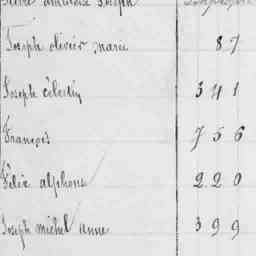 Joseph olivier marie 87
Joseph célestin 341
François 756
Félix alphonse 220
Joseph michel anne 399